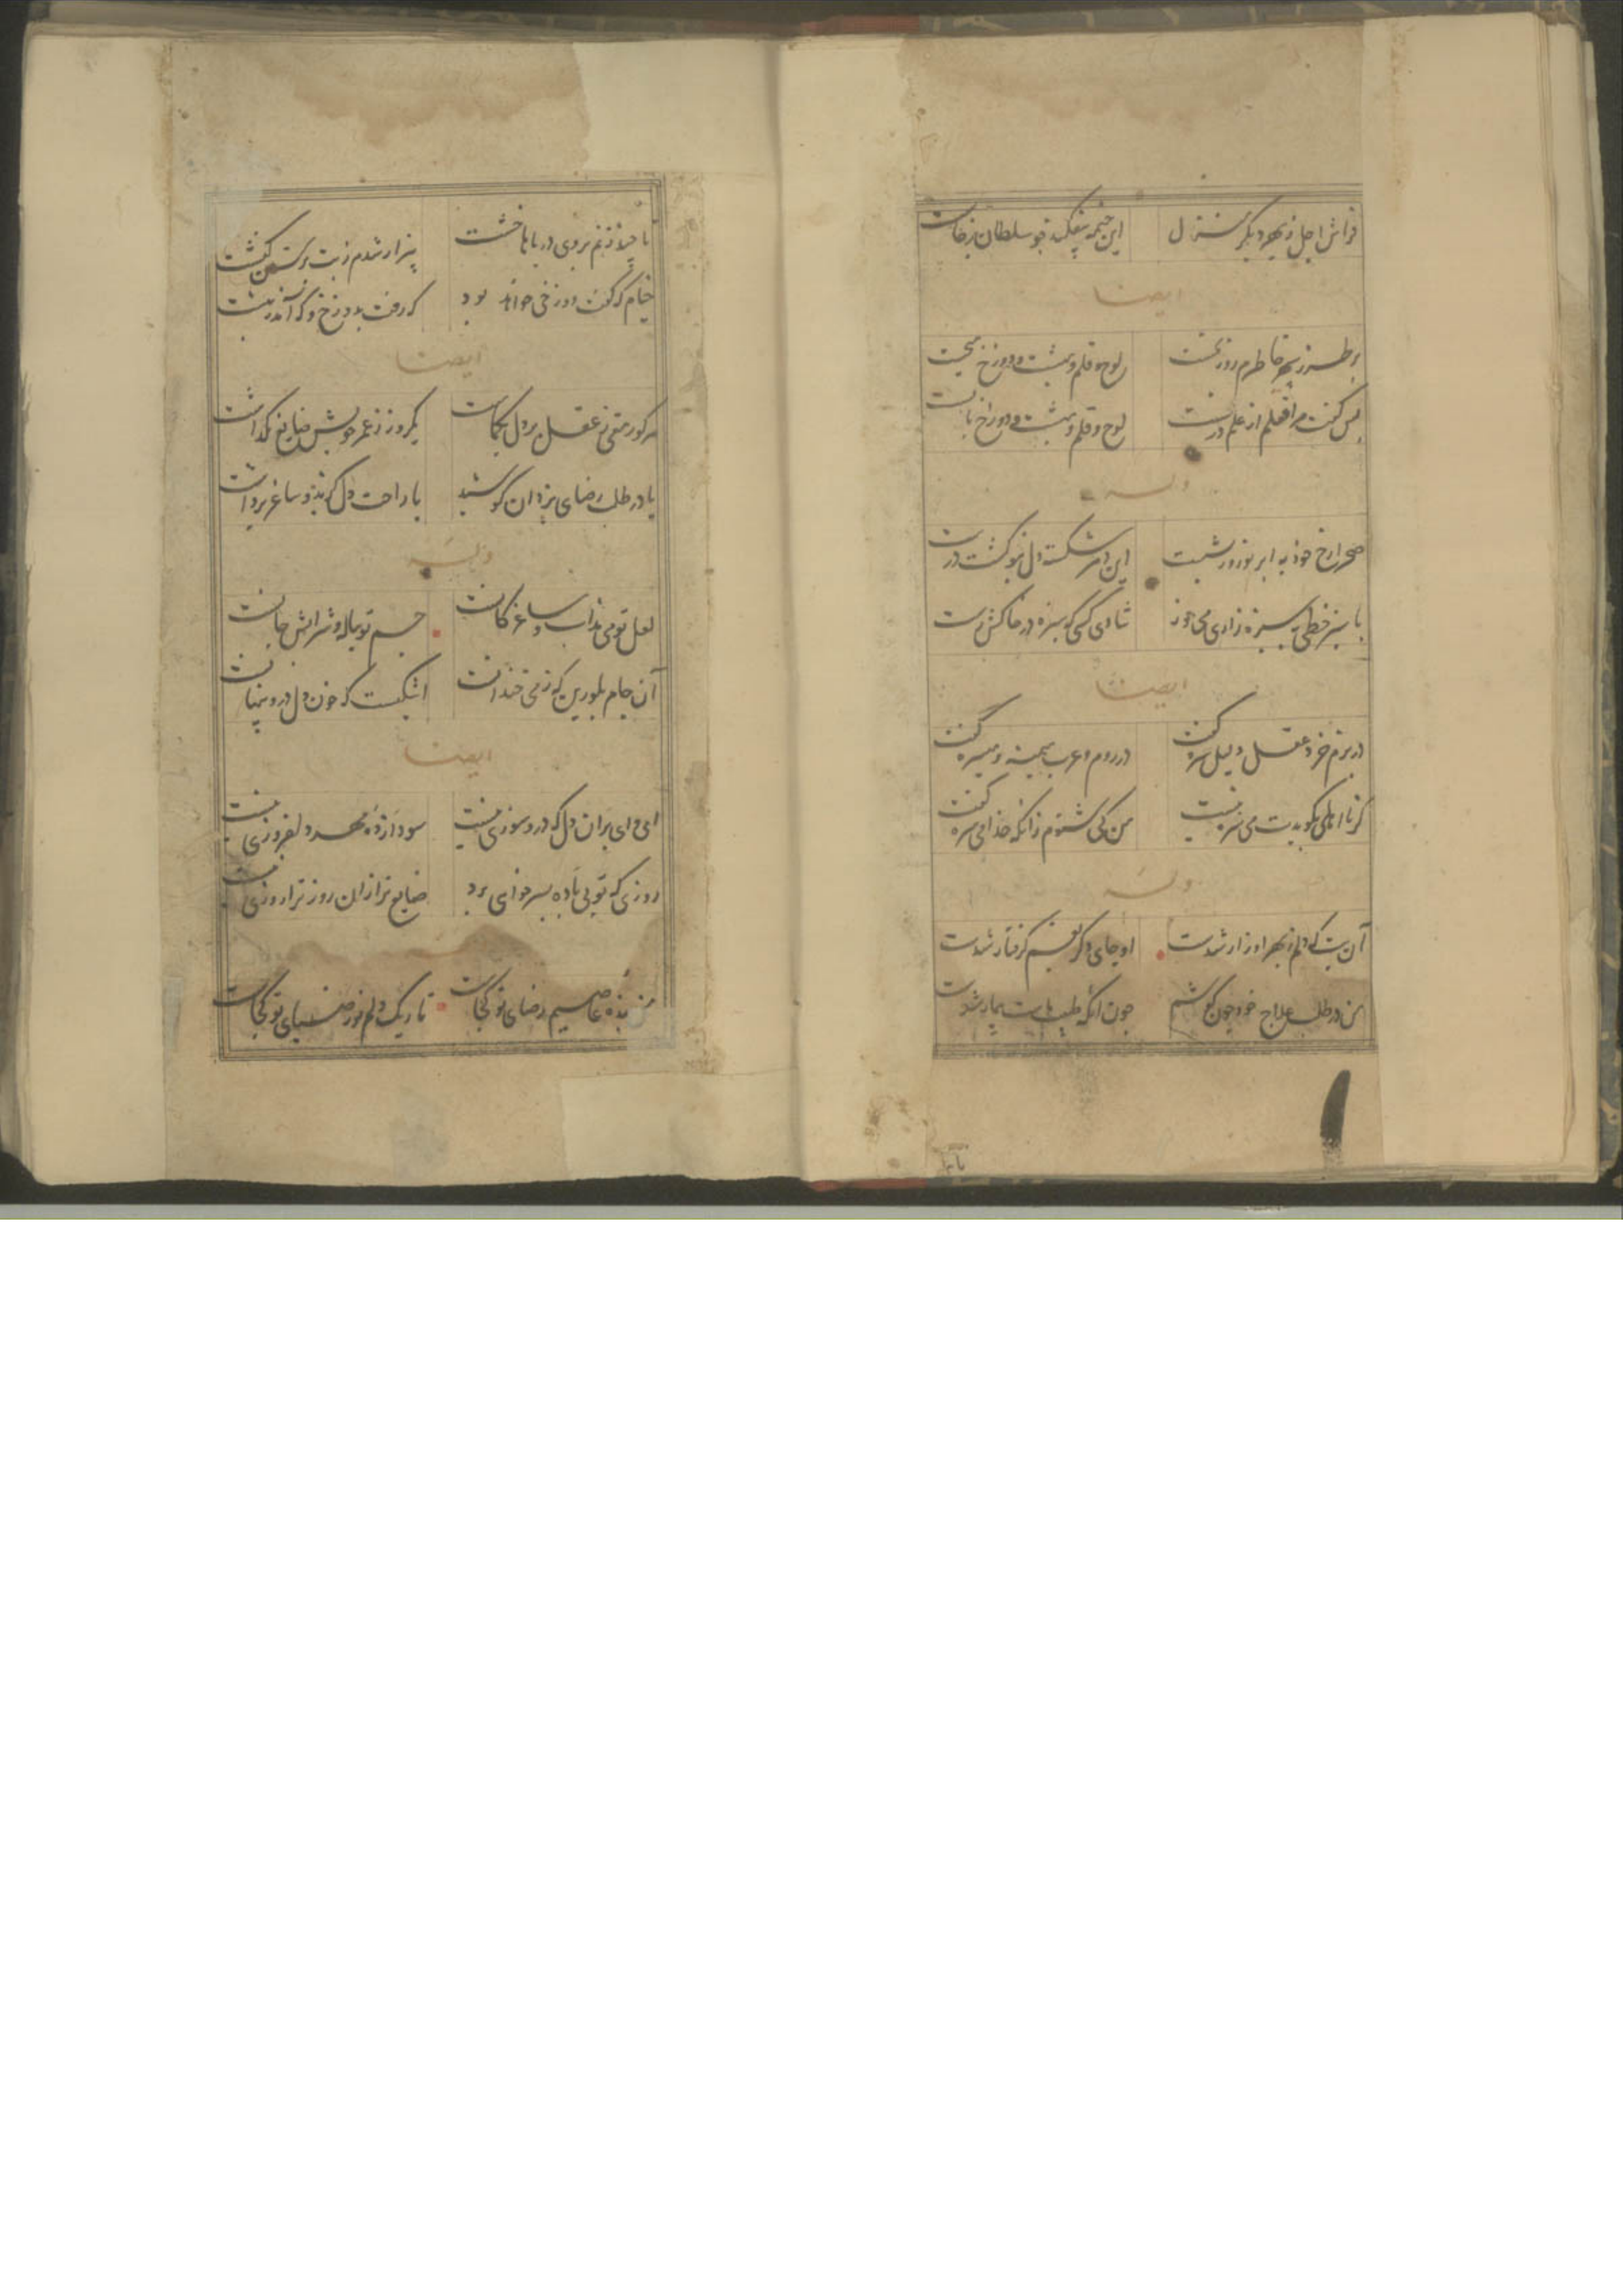 فراش اجل ز بهر دیگر منزل این خیمه بیفکند چو سلطان برخاست
ایضا
بر طرز سپهر خاطرم روز نخست لوح و قلم و بهشت و دوزخ میجست
پس گفت مرا معلم از علم درست لوح و قلم و بهشت و دوزخ با تست
وله
صحرا رخ خود به ابر نوروز بشست این دهر شکسته دل بنو گشت درست
با سبز خطی بسبزه زاری می خور شادی کسی که سبزه از خاکش رست
ایضا
در بزم خرد عقل دلیل سره گفت در روم و عرب میمنه و میسره گفت
گر نا اهلی بگویدت می سره نیست من کی شنوم زانکه خدا میسره گفت
وله
آن بت که دلم ز بهر او زار شدست او جای دگر بغم گرفتار شدست
من در طلب علاج خود چون کوشم چون آنکه طبیب ماست بیمار شدست
تا چند زنم بروی دریاها خشت بیزار شدم ز بت پرستان کنشت
خیام که گفت دوزخی خواهد بود که رفت بدوزخ و که آمد ز بهشت
ایضا
هر کو رقمی ز عقل بر دل بنگاشت یکروز ز عمر خویش ضایع نگذاشت
یا در طلب رضای یزدان کوشید یا راحت دل گزید و ساغر برداشت
وله
لعل تو می مذاب و ساغر کانست جسم تو پیاله و شرابش جانست
آن جام بلورین که ز می خندانست اشکیست که خون دل درو پنهانست
ایضا
ای وای بران دل که درو سوزی نیست سودا زده مهر دلفروزی نیست
روزی که تو بی باده بسر خواهی برد ضایع تر ازان روز ترا روزی نیست
من بنده عاصیم رضای تو کجاست تاریک دلم نور ضیای تو کجاست